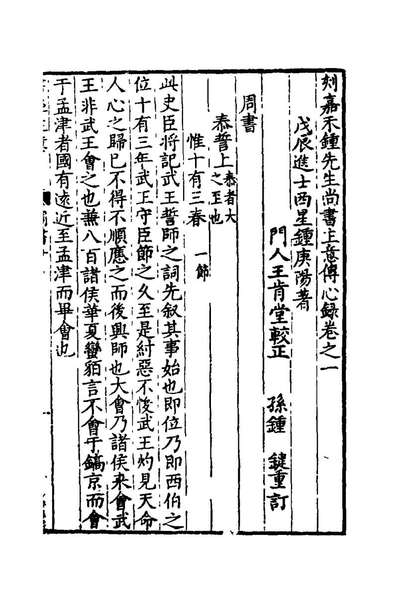 刻嘉禾鍾先生尚書主意傳心錄卷之一
戊辰進士西星鍾庚陽著
門人王肯堂較正 孫鍾 鍵重訂
周書
泰誓上 泰者大之至也
惟十有三春 一節
此史臣將記武王誓師之詞先叙其事始也即位乃即西伯之
位十有三年武王守臣節之久至是紂惡不悛武王灼見天命
人心之歸已不得不順應之而後興師也大會乃諸侯來會武
王非武王會之也兼八百諸侯華夏蠻貊言不會于鎬京而會
于孟津者國有遠近至孟津而畢會也